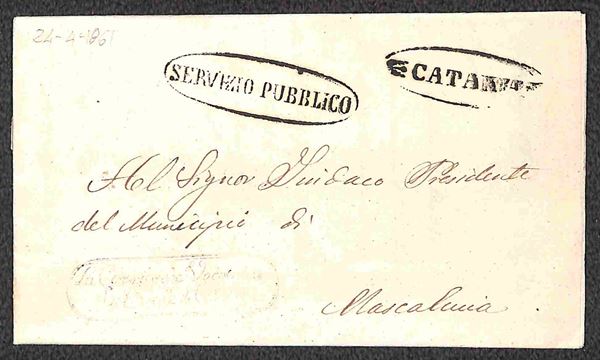 24-4-1861
SERVIZIO PUBBLICO
CATANIA
Al Signor Sindaco Presidente
del Municipio di
Mascalucia